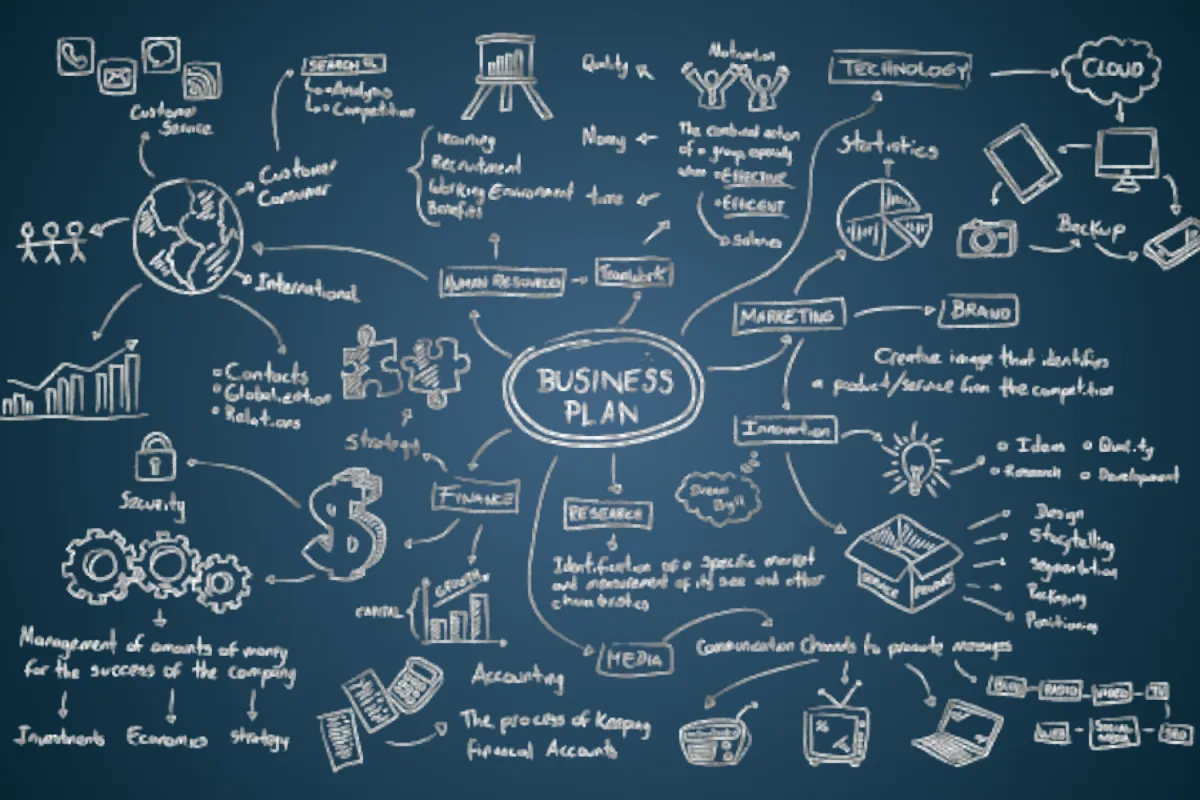 Customer
Service
SEARCH
Analysis
Competition
Customer
Consumer
International
Contacts
Globalization
Relations
Recruitment
Working Environment
Benefits
HUMAN RESOURCES
Teamwork
Quality
Money
time
Motivation
The combined action
of a group, especially
when EFFECTIVE
EFFICENT
Salaries
TECHNOLOGY
CLOUD
Backup
Statistics
MARKETING
BRAND
Creative image that identifies
a product/service from the competition
BUSINESS
PLAN
Innovation
Ideas
Quality
Research
Development
Dream
Big!!
SERVICE
PRODUCT
Design
Storytelling
Segmentation
Packaging
Positioning
Strategy
FINANCE
Security
GROWTH
CAPITAL
Management of amounts of money
for the success of the company
Investments
Economics
strategy
Accounting
The process of Keeping
Financial Accounts
RESEARCH
Identification of a specific market
and measurement of its size and other
MEDIA
Communication Channels to promote messages
BLOG
RADIO
VIDEO
TV
WEB
SOCIAL
MEDIA
SEO